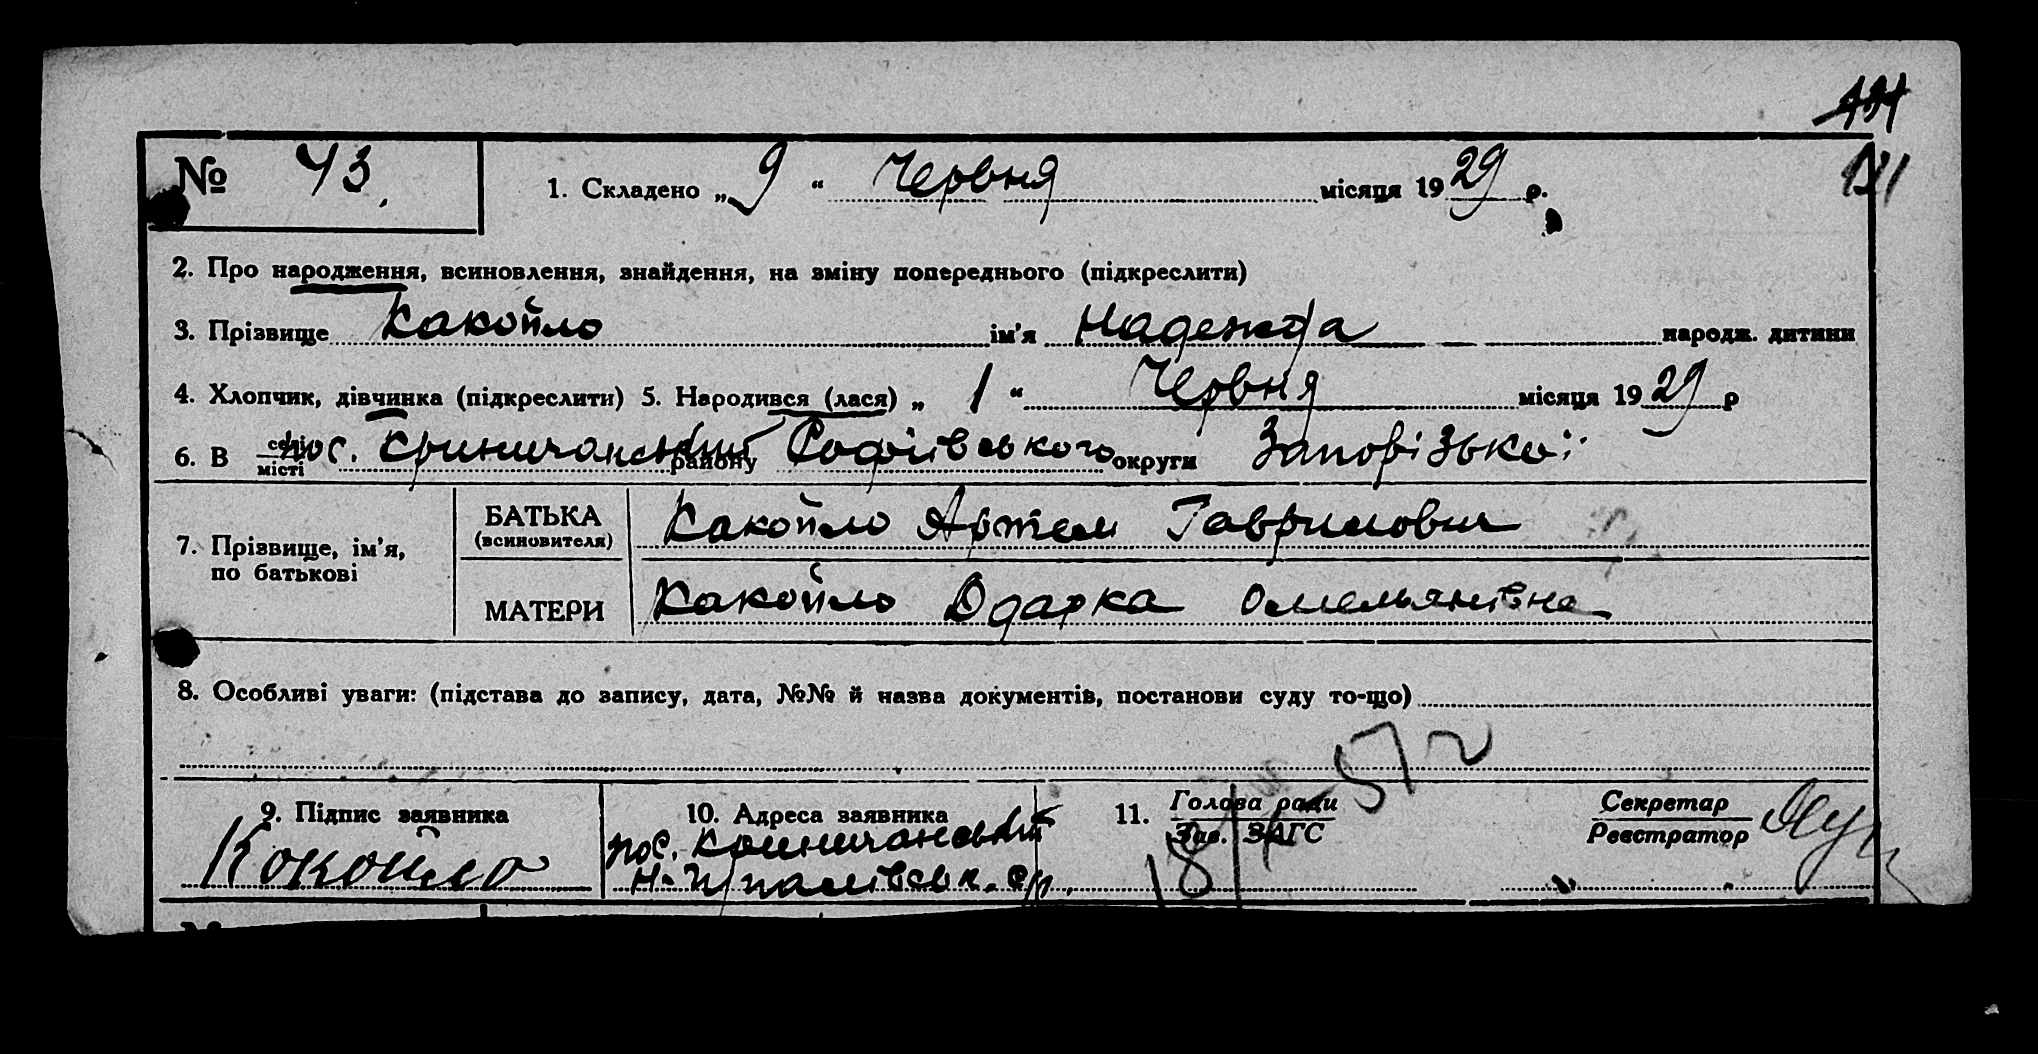 № 43.
1. Складено „ 9 “ Червня місяця 1929 р.
2. Про народження, всиновлення, знайдення, на зміну попереднього (підкреслити)
3. Прізвище Какойло ім'я Надежда народж. дитини
4. Хлопчик, дівчинка (підкреслити) 5. Народився (лася) „ 1 “ Червня місяця 1929 р
6. В селі місті пос. Криничанський району Софіівського округи Запорізькоі
7. Прізвище, ім'я, по батькові
БАТЬКА (всиновителя) Какойло Артем Гаврилович
МАТЕРИ Какойло Одарка Омельянівна
8. Особливі уваги: (підстава до запису, дата, №№ й назва документів, постанови суду то-що)
9. Підпис заявника 10. Адреса заявника 11. Голова ради Зав. ЗАГС Секретар Реєстратор
Кокойло пос. Криничанський